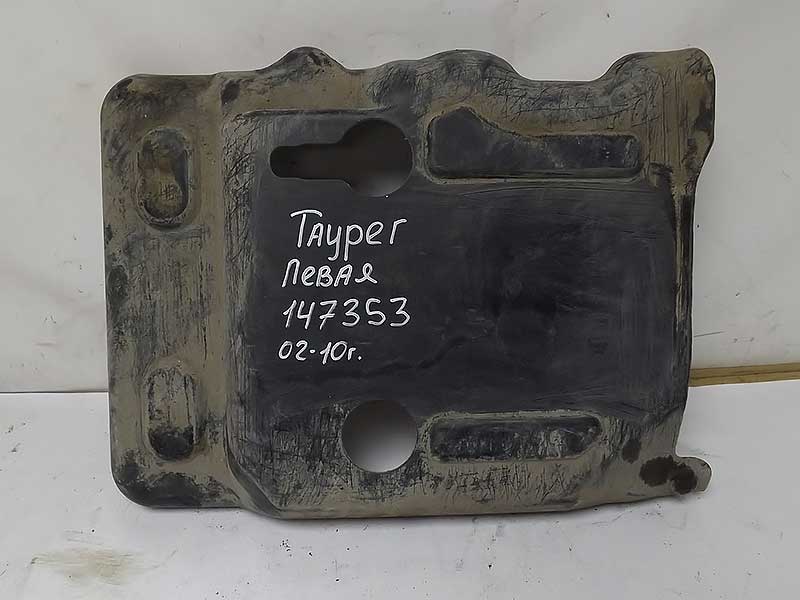 Таурег
левая
147353
02-10г.